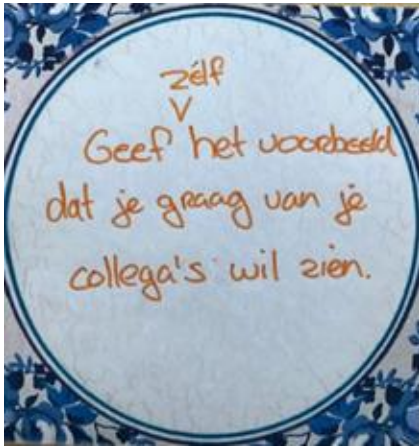 zélf
Geef het voorbeeld
dat je graag van je
collega's wil zien.